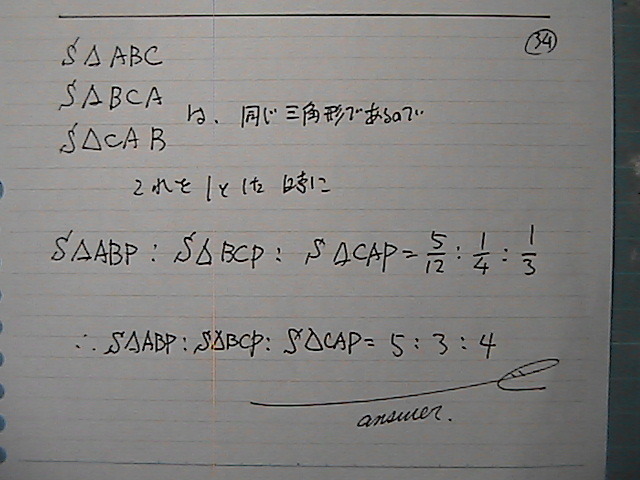 ㉞
S△ABC
S△BCA
S△CAB
は、同じ三角形であるので
これを1とした時に
S△ABP : S△BCP : S△CAP = 5/12 : 1/4 : 1/3
∴ S△ABP : S△BCP : S△CAP = 5 : 3 : 4
answer.